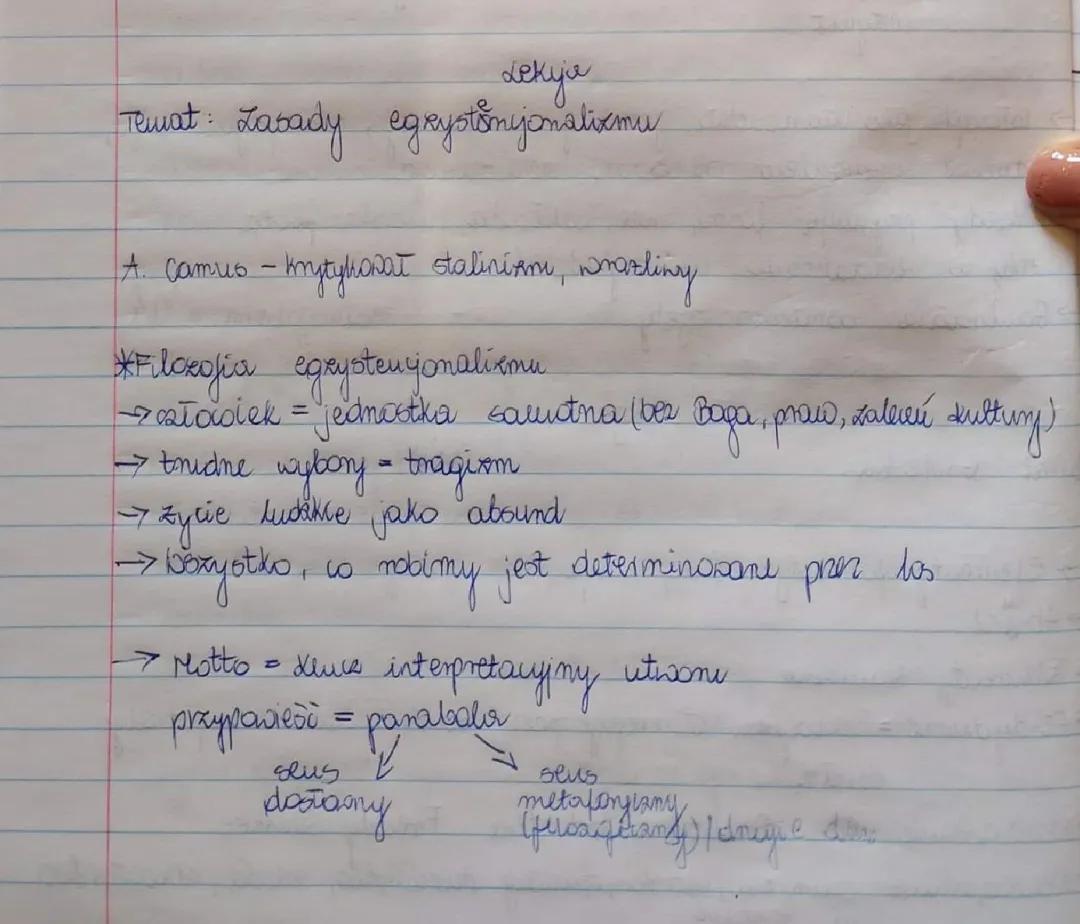 Lekcja
Temat: Zasady egzystencjonalizmu
A. Camus - krytykował stalinizm, wrażliwy
*Filozofia egzystencjonalizmu
→ człowiek = jednostka samotna (bez Boga, praw, zaleceń kultury)
→ trudne wybory = tragizm
→ życie ludzkie jako absurd
→ Wszystko, co robimy jest determinowane przez los
→ Motto = klucz interpretacyjny utworu
przypowieść = parabola
sens sens
dosłowny metaforyczny
(filozoficzny) / drugie